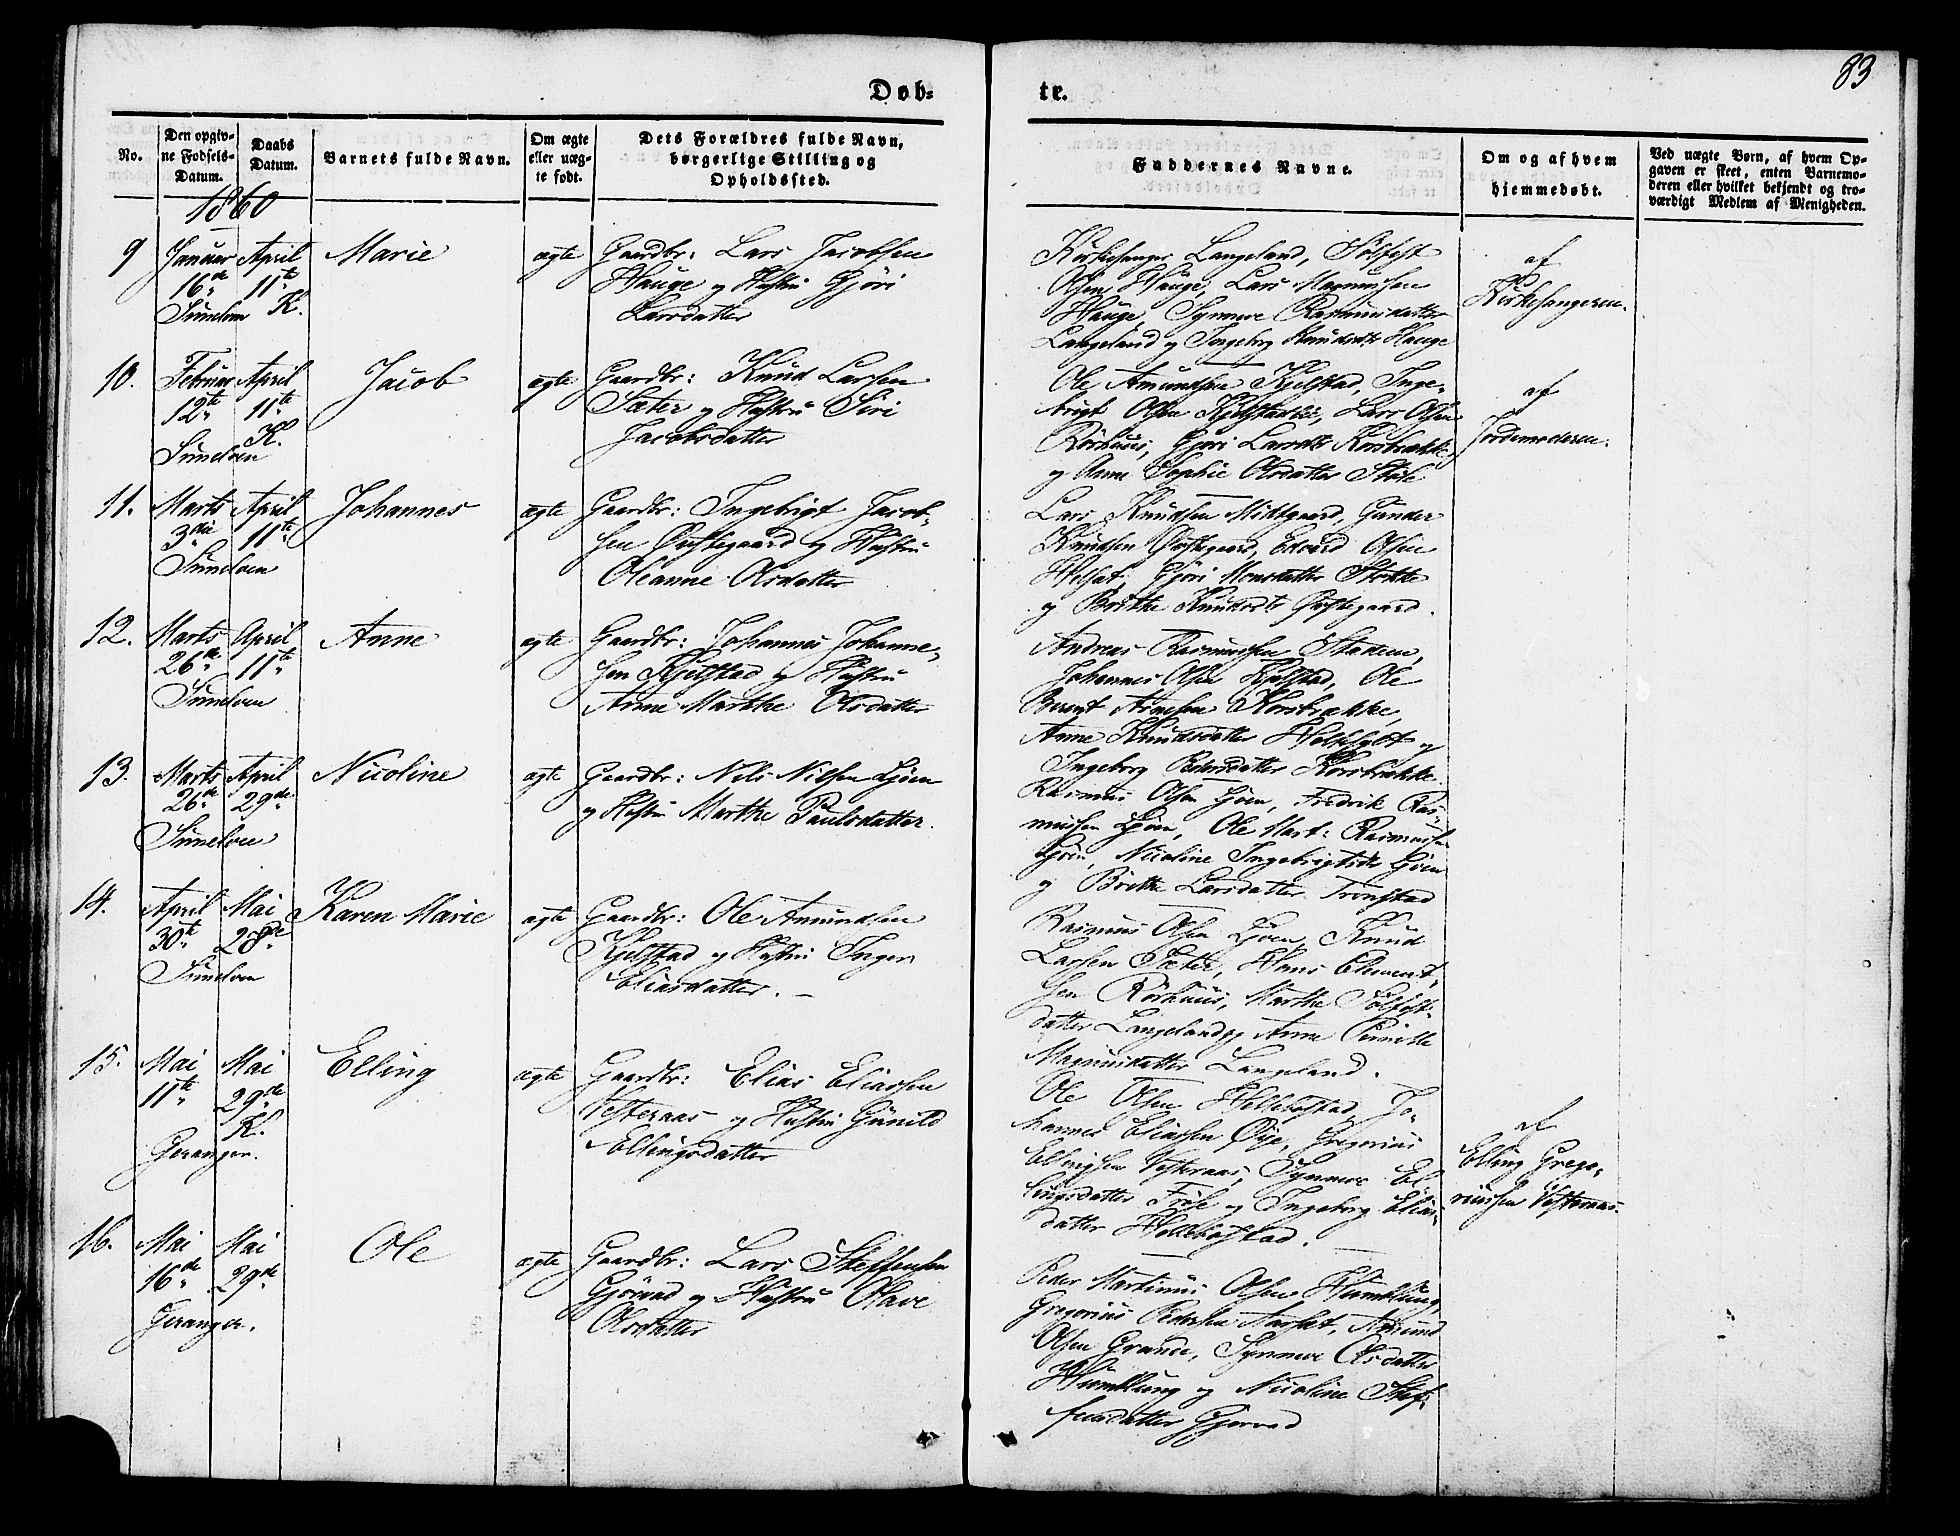 83
Døb-
te.
No.
Den opgiv-
ne Fødsels-
Datum.
Daabs
Datum.
Barnets fulde Navn.
Om ægte
eller uæg-
te født.
Dets Forældres fulde Navn,
borgerlige Stilling og
Opholdssted.
Faddernes Navne.
Om og af hvem
hjemmedøbt.
Ved uægte Børn, af hvem Op-
gaven er skeet, enten Barnemo-
deren eller hvilket bekjendt og tro-
værdigt Medlem af Menigheden.
1860
9
Januar
16de
Sunelven
April
11te
K.
Marie
ægte
Gaardbr: Lars Jacobsen
Hauge og Hustru Gjøri
Larsdatter
Kirkesanger Langeland, Sølfest
Olsen Hauge, Lars Magnussen
Hauge, Synneve Rasmusdatter
Langeland og Ingeborg Knudsdtr Hauge
af
Kirkesangeren.
10.
Februar
12te
Sunelven
April
11te
K.
Jacob
ægte
Gaardbr: Knud Larsen
Sæter og Hustru Siri
Jacobsdatter
Ole Amundsen Kjelstad, Inge-
brigt Olsen Kjelstadlie, Lars Olsen
Rørhuus, Gjøri Larsdtr Korsbrække
og Anne Sophie Olsdatter
af
Jordemoderen.
11.
Marts
3die
Sunelven
April
11te
Johannes
ægte
Gaardbr: Ingebrigt Jacob-
sen Østegaard og Hustru
Oleanne Olsdatter
Lars Knudsen Midtgaard, Gunder
Knudsen Østegaard, Edvard Olsen
Gjøri Monsdatter Stokke
og Brithe Knudsdtr Østegaard.
12.
Marts
26de
Sunelven
April
11te
Anne
ægte
Gaardbr: Johannes Johanne-
sen Kjelstad og Hustru
Anne Marthe Olsdatter
Andreas Rasmussen Stadem,
Johannes Olsen Kjelstad, Ole
Berent Arnesen Korsbrække,
Anne Knudsdatter Hellesylt og
Ingeborg Pedersdatter Korsbrække.
13.
Marts
26de
Sunelven
April
29de
Nicoline
ægte
Gaardbr: Nils Nilsen Ljøen
og Hustru Marthe Paulsdatter.
Rasmus Olsen Ljøen, Fredrik Ras-
mussen Ljøen, Ole Mart: Rasmussen
Ljøen, Nicoline Ingebrigtsdtr Ljøen
og Brithe Larsdatter Tronstad
14.
April
30te
Sunelven
Mai
28de
Karen Marie
ægte
Gaardbr: Ole Amundsen
Kjelstad og Hustru Inger
Eliasdatter.
Rasmus Olsen Ljøen, Knud
Larsen Sæter, Hans Clement-
sen Rørhuus, Marthe Sølfest-
datter Langeland og Anne Pernille
Magnusdatter Langeland.
15.
Mai
11te
Geranger.
Mai
29de
K.
Elling
ægte
Gaardbr: Elias Eliassen
Vesteraas og Hustru Gunild
Ellingsdatter
Ole Olsen Hellebostad, Jo-
hannes Eliassen Øye, Gregorius
Ellingsen Vesteraas, Synneve El-
lingsdatter og Ingeborg Elias-
datter Hellebostad.
af
Elling Grego-
riussen Vesteraas.
16.
Mai
16de
Geranger.
Mai
29de
Ole
ægte
Gaardbr: Lars Steffensen
Gjørvad og Hustru Olave
Olsdatter
Peder Martinus Olsen Humlung,
Gregorius Pedersen Aarset, Amund
Olsen Grande, Synneve Olsdatter
Humlung og Nicoline Stef-
fensdatter Gjørvad